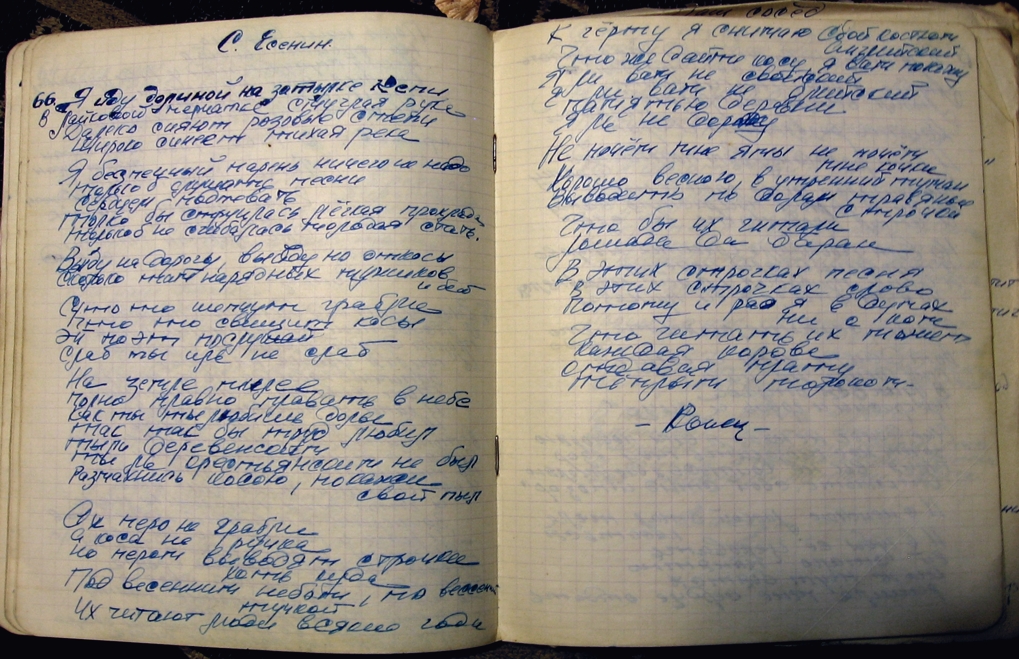 С. Есенин.
66. Я иду долиной на затылке кепи
В лайковой перчатке смуглая рука
Далеко сияют розовые степи
Широко синеет тихая река
Я беспечный парень ничего не надо
только слушать песни
сердцем подпевать
только бы струилась лёгкая прохлада
только б не сгибалась молодая стать.
Выйду на дорогу, выйду на откосы
Сколько там нарядных мужиков
и баб
Что то шепчут грабли
Что то свищут косы
Эй поэт послушай
слаб ты иль не слаб
На земле милее
полно плавать в небе
Как ты любишь долы
так бы труд любил
ты ли деревенским
ты ль крестьянским не был
Размахнись косою, покажи
свой пыл
Ах перо не грабли
а коса не ручка
но пером выводят строчки
хоть куда
Под весенним небом, по весенней
тучкой
Их читают люди всякие года
К чёрту я снимаю свой костюм
английский
Что же дайте косу я вам покажу
Я ли вам не свойский
Я ли вам не близкий
памятью деревни
Я ль не дорожу
Не почём мне ямы не почём
мне кочки
Хорошо косою в утренний туман
Выводить по долам травяные
строчки
Что бы их читали
лошадь да баран
В этих строчках песня
в этих строчках слово
потому и рад я в думах
ни о ком
Что читать их может
каждая корова
отдавая плату
тёплым молоком.
- Конец -